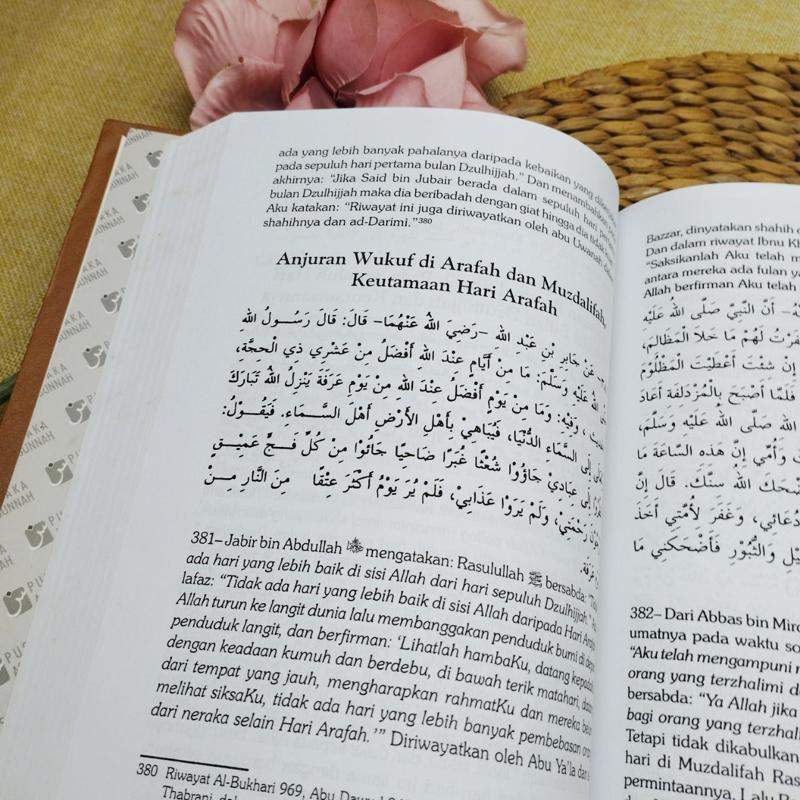 ada yang lebih banyak pahalanya daripada kebaikan yang
pada sepuluh hari pertama bulan Dzulhijjah." Dan menambahkan
akhirnya: "Jika Said bin Jubair berada dalam sepuluh hari
bulan Dzulhijjah maka dia beribadah dengan giat hingga dia tidak
Aku katakan: "Riwayat ini juga diriwayatkan oleh abu Uwanah
shahihnya dan ad-Darimi."380
Anjuran Wukuf di Arafah dan Muzdalifah,
Keutamaan Hari Arafah
عَنْ جَابِرِ بْنِ عَبْدِ اللهِ –رَضِيَ اللهُ عَنْهُمَا– قَالَ: قَالَ رَسُولُ اللهِ
اللهُ عَلَيْهِ وَسَلَّمَ: مَا مِنْ أَيَّامٍ عِنْدَ اللهِ أَفْضَلُ مِنْ عَشْرِي ذِي الْحِجَّةِ،
وَفِيْهِ: وَمَا مِنْ يَوْمٍ أَفْضَلُ عِنْدَ اللهِ مِنْ يَوْمِ عَرَفَةَ يَنْزِلُ اللهُ تَبَارَكَ
إِلَى السَّمَاءِ الدُّنْيَا، فَيُبَاهِيْ بِأَهْلِ الأَرْضِ أَهْلَ السَّمَاءِ. فَيَقُوْلُ:
إِلَى عِبَادِيْ جَاؤُوْا شُعْثًا غُبَرًا ضَاحِيًا جَائُوْا مِنْ كُلِّ فَجٍّ عَمِيْقٍ
رَحْمَتِيْ، وَلَمْ يَرَوْا عَذَابِيْ، فَلَمْ يُرَ يَوْمٌ أَكْثَرَ عِتْقًا مِنَ النَّارِ مِنْ
عَرَفَةَ.
381– Jabir bin Abdullah mengatakan: Rasulullah ﷺ bersabda:
ada hari yang lebih baik di sisi Allah dari hari sepuluh Dzulhijjah."
lafaz: "Tidak ada hari yang lebih baik di sisi Allah daripada Hari
Allah turun ke langit dunia lalu membanggakan penduduk bumi di
penduduk langit, dan berfirman: 'Lihatlah hambaKu, datang
dengan keadaan kumuh dan berdebu, di bawah terik matahari,
dari tempat yang jauh, mengharapkan rahmatKu dan mereka
melihat siksaKu, tidak ada hari yang lebih banyak pembebasan
dari neraka selain Hari Arafah.'" Diriwayatkan oleh Abu Ya'la dan
380 Riwayat Al-Bukhari 969, Abu
Thabrani,
Bazzar, dinyatakan shahih
Dan dalam riwayat Ibnu
"Saksikanlah Aku telah
antara mereka ada fulan
Allah berfirman Aku telah
أَنَّ النَّبِيَّ صَلَّى اللهُ عَلَيْهِ
لَهُمْ مَا خَلاَ الْمَظَالِمَ،
إِنْ شِئْتَ أَعْطَيْتَ الْمَظْلُوْمَ
فَلَمَّا أَصْبَحَ بِالْمُزْدَلِفَةِ أَعَادَ
اللهِ صَلَّى اللهُ عَلَيْهِ وَسَلَّمَ،
وَأُمِّي إِنَّ هَذِهِ السَّاعَةَ مَا
اللهُ سِنَّكَ. قَالَ إِنَّ
دُعَائِي، وَغَفَرَ لِأُمَّتِي أَخَذَ
وَالثُّبُوْرِ فَأَضْحَكَنِي مَا
382– Dari Abbas bin
umatnya pada waktu
"Aku telah mengampuni
orang yang terzhalimi
bersabda: "Ya Allah jika
bagi orang yang
Tetapi tidak dikabulkan
hari di Muzdalifah
permintaannya.